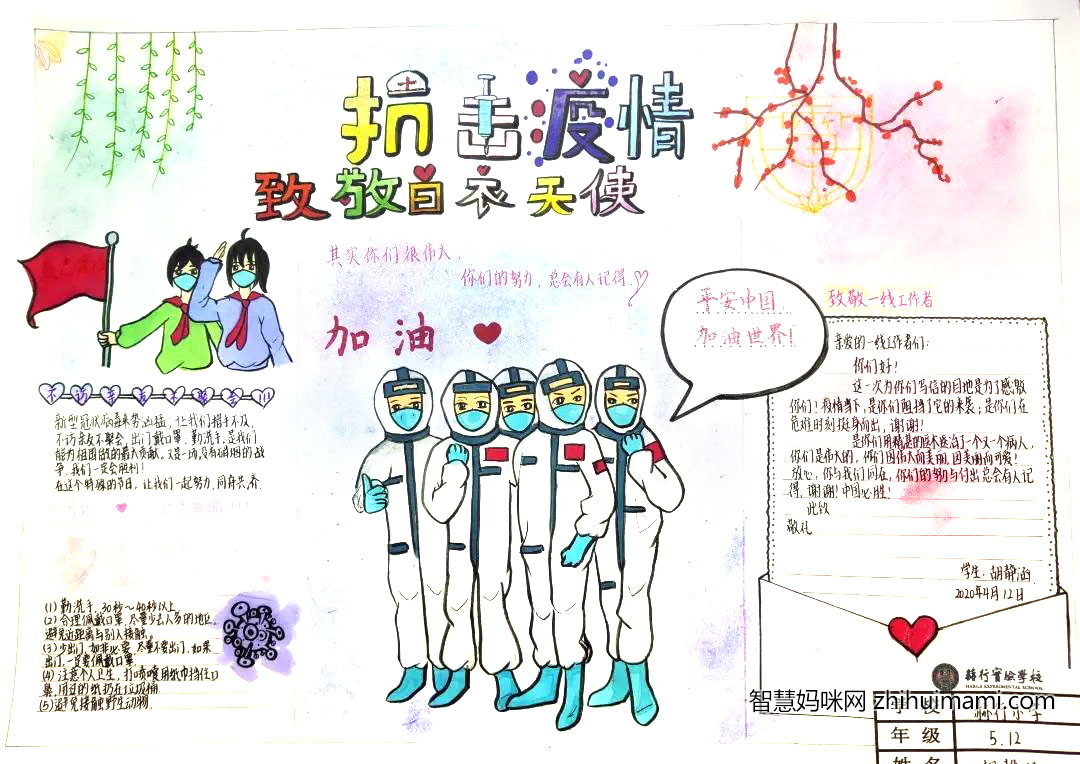 抗击疫情
致敬白衣天使
其实你们很伟大,
你们的努力,总会有人记得.
加油
平安中国,
加油世界!
不访亲友不聚会!!!
新型冠状病毒来势汹猛,让我们措手不及,
不访亲友不聚会,出门戴口罩,勤洗手,是我们
能为祖国做的最大贡献。这是一场没有硝烟的战
争,我们一定会胜利!
在这个特殊的节日,让我们一起努力,同舟共济.
(1)勤洗手,30秒~40秒以上
(2)合理佩戴口罩,尽量少去人多的地方,
避免近距离与别人接触。
(3)少出门,如非必要,尽量不要出门,如果
出门,一定要佩戴口罩
(4)注意个人卫生,打喷嚏用纸巾挡住口
鼻,用过的纸扔在垃圾桶
(5)避免接触野生动物.
致敬一线工作者
亲爱的一线工作者们:
你们好!
这一次为你们写信的目地是为了感激
你们!疫情当下,是你们阻挡了它的来袭;是你们在
危难时刻挺身向出,谢谢!
是你们用精湛的医术医治了一个又一个病人,
你们是伟大的,你们因伟大向美丽,因美丽向可爱!
放心,你与我们同在,你们的努力与付出总会有人记
得,谢谢!中国必胜!
此致
敬礼
学生:胡静涵
2020年4月12日
赫行实验学校
智慧妈咪网 zhihuimami.com
年级
5.12